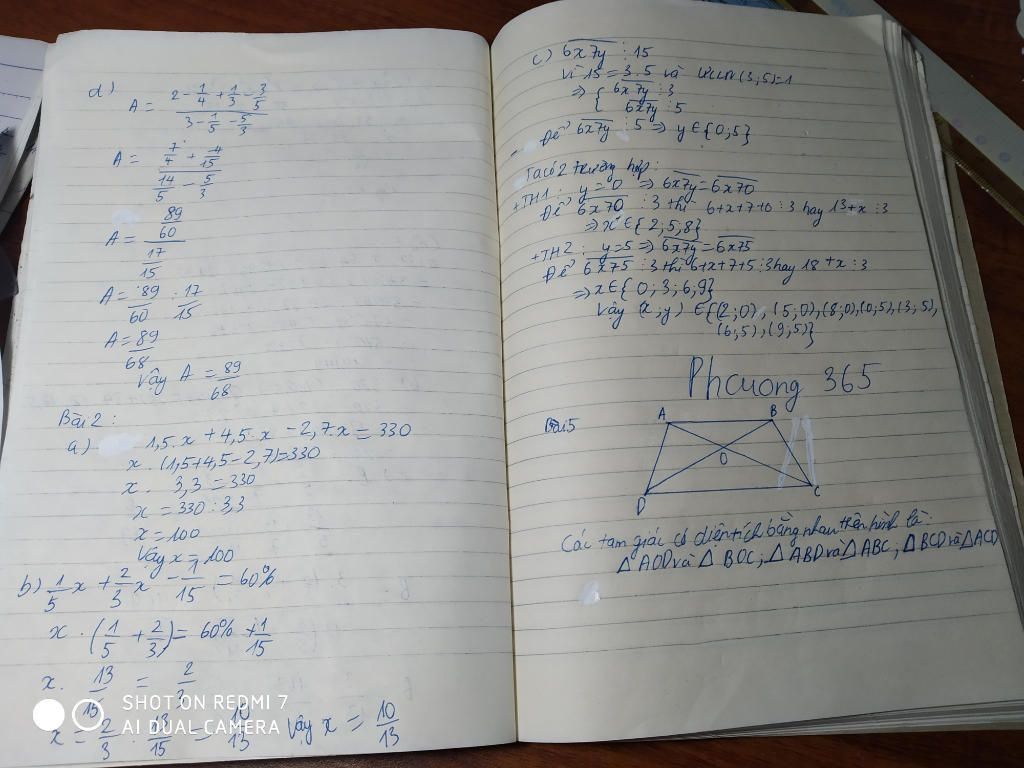 d)
A = (2 - 1/4 + 1/3 - 3/5) / (3 - 1/5 - 5/3)
A = (7/4 + -4/15) / (14/5 - 5/3)
A = (89/60) / (17/15)
A = 89/60 : 17/15
A = 89/68
Vậy A = 89/68
Bài 2 :
a) 1,5.x + 4,5.x - 2,7.x = 330
x . (1,5+4,5-2,7)=330
x . 3,3 = 330
x = 330 : 3,3
x = 100
Vậy x = 100
b) 1/5 x + 2/3 x - 1/15 = 60%
x . (1/5 + 2/3) = 60% + 1/15
x . 13/15 = 2/3
x = 2/3 : 13/15 = 10/13 Vậy x = 10/13
SHOT ON REDMI 7
AI DUAL CAMERA
c) 6x7y ⋮ 15
Vì 15 = 3.5 và ƯCLN(3;5)=1
⇒ { 6x7y ⋮ 3
6x7y ⋮ 5
- Để 6x7y ⋮ 5 ⇒ y ∈ {0;5}
Ta có 2 trường hợp :
+TH1 : y = 0 ⇒ 6x7y = 6x70
Để 6x70 ⋮ 3 thì 6+x+7+0 ⋮ 3 hay 13+x ⋮ 3
⇒ x ∈ {2;5;8}
+TH2 : y=5 ⇒ 6x7y = 6x75
Để 6x75 ⋮ 3 thì 6+x+7+5 ⋮ 3 hay 18+x ⋮ 3
⇒ x ∈ {0;3;6;9}
Vậy (x;y) ∈ {(2;0), (5;0), (8;0), (0;5), (3;5),
(6;5), (9;5)}
Phcuong 365
Bài 5
A B
O
D C
Các tam giác có diện tích bằng nhau trên hình là:
Δ AOD và Δ BOC; Δ ABD và Δ ABC; Δ BCD và Δ ACD